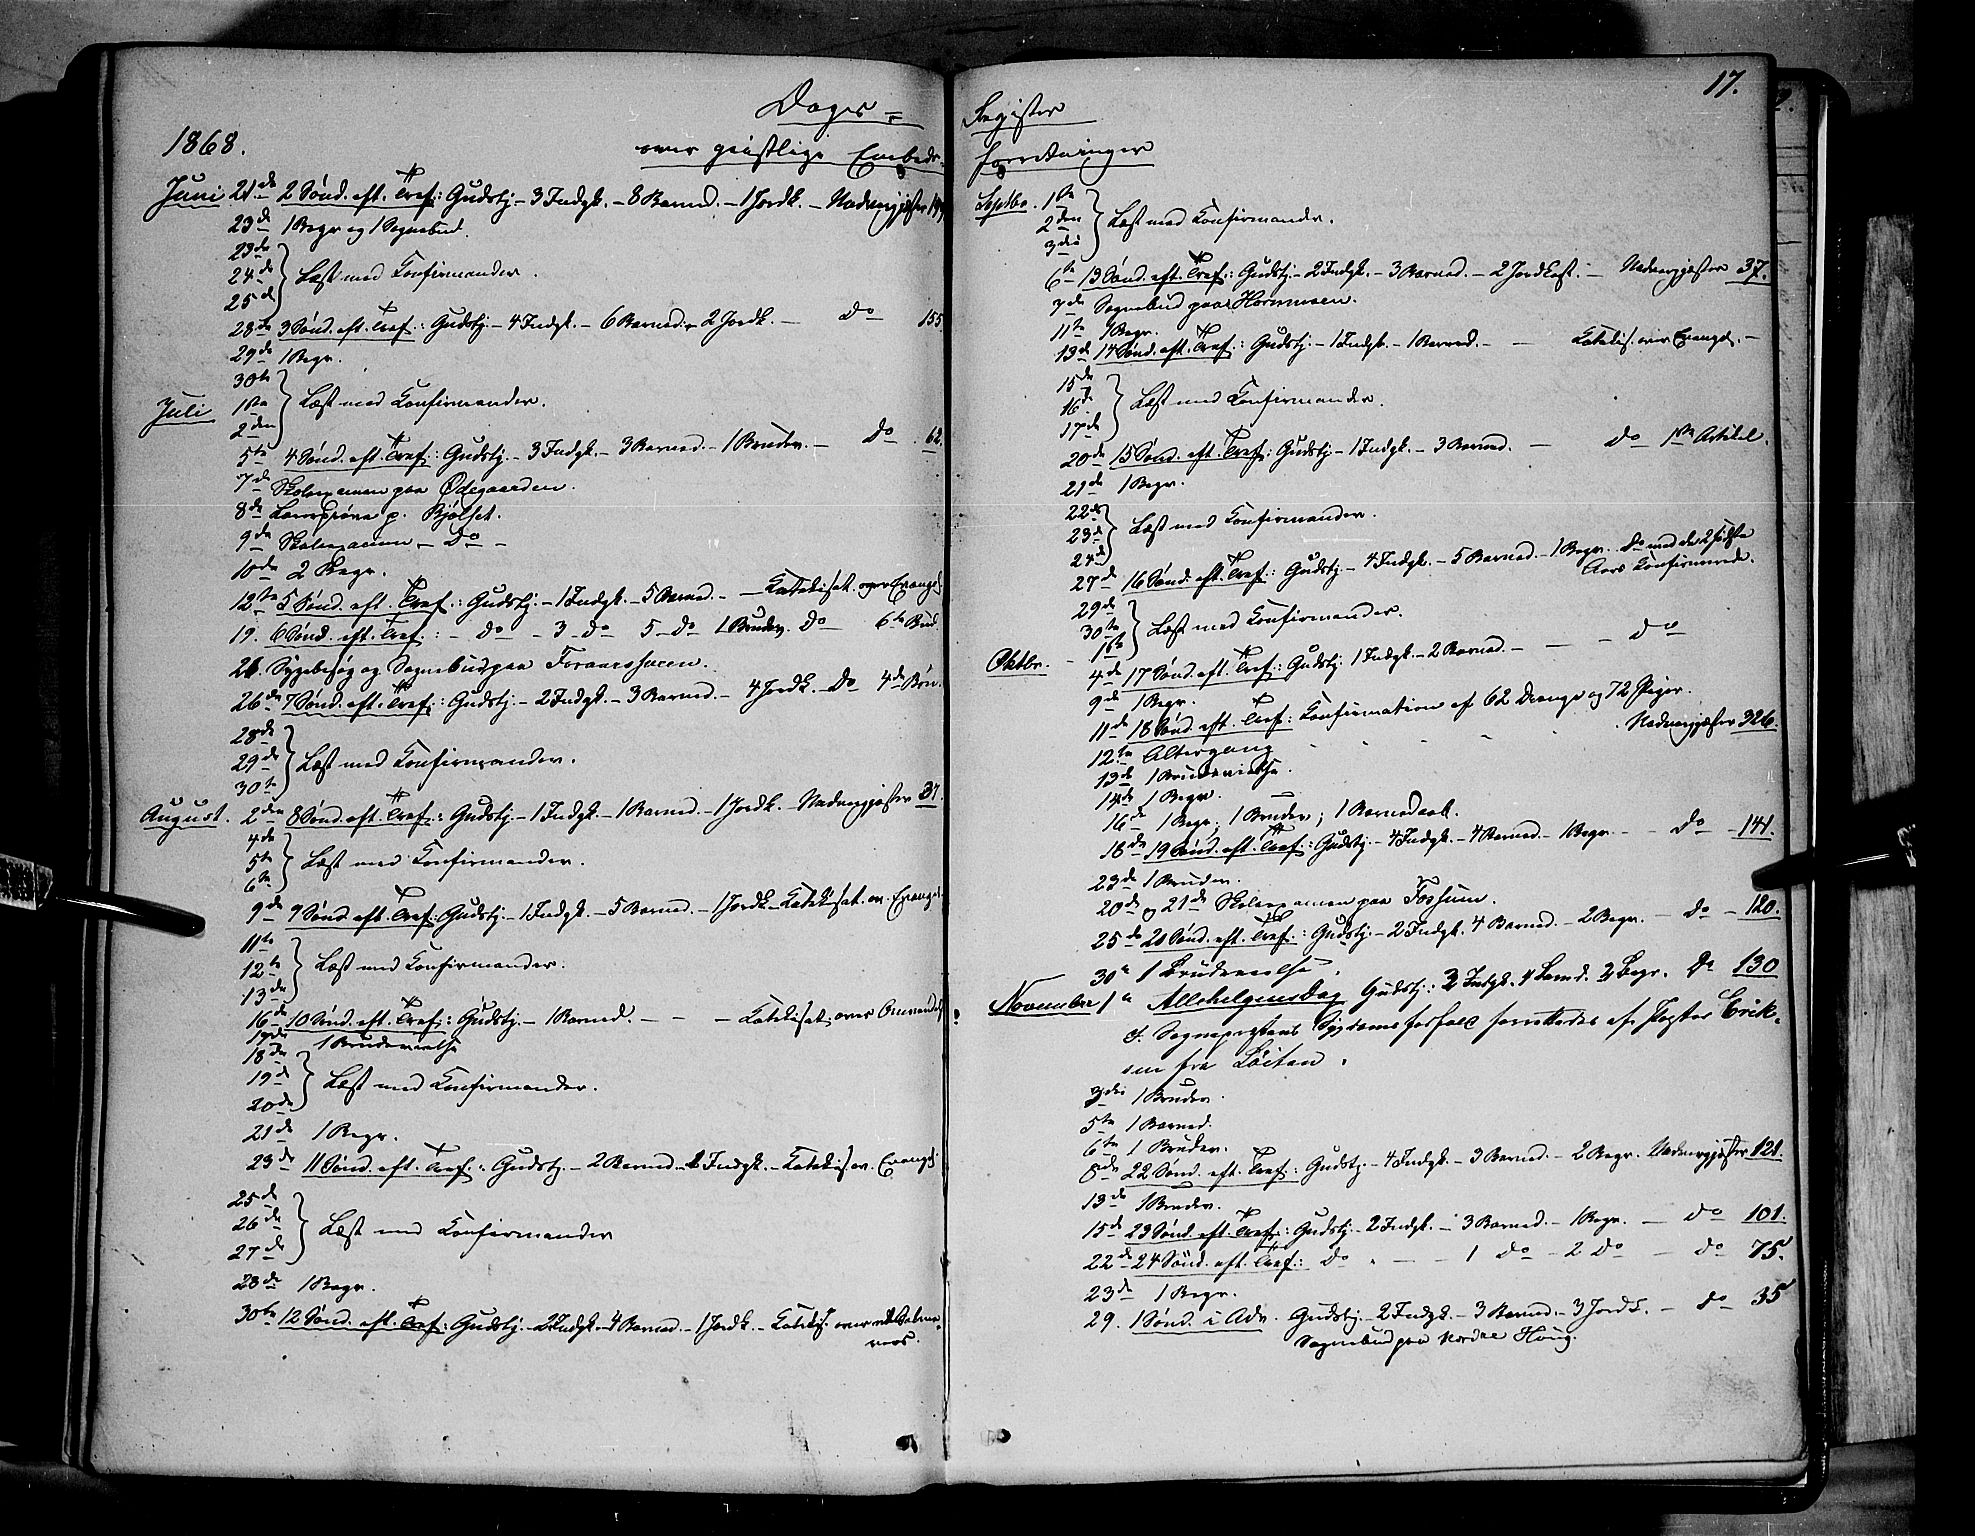 17.
Dags= Register
1868.
over geistlige Embeds= forretninger
Juni 21de 2 Sønd. eft. Tref: Gudstj. – 3 Indgk. – 8 Barned. – 1 Jordk. – Nadvergjæster
23de 1 Begr. og 1 Sognebud.
23de
24de Læst med Konfirmander.
25de
28de 3 Sønd. eft. Tref.: Gudstj. – 4 Indgk. – 6 Barned. – 2 Jordk. – Do 155
29de 1 Begr.
30te
Juli 1ste Læst med Konfirmander.
2den
5te 4 Sønd. eft. Tref: Gudstj. – 3 Indgk. – 3 Barned. – 1 Brudev. – Do 62.
7de Skoleexamen paa Ødegaarden.
8de p. Bjølset.
9de Skoleexamen – Do –
10de 2 Begr.
12te 5 Sønd. eft. Tref.: Gudstj. – 1 Indgk. – 5 Barned. – Katekisat. over Evangel.
19. 6 Sønd. eft. Tref.: – Do – 3 – Do 5 – Do 1 Brudev. Do – 6te Bud
26. Sygebesøg og Sognebud paa
26de 7 Sønd. eft. Tref: Gudstj. – 2 Indgk. – 3 Barned. – 4 Jordk. Do 4de Bøn.
28de
29de Læst med Konfirmander.
30te
August. 2den 8 Sønd. eft. Tref: Gudstj. – 1 Indgk. – 1 Barned. – 1 Jordk. – Nadvergjæster 31.
4de
5te Læst med Konfirmander.
6te
9de 9 Sønd. eft. Tref. Gudstj. – 1 Indgk. – 5 Barned. – 1 Jordk. – Katekisat. ov. Evangel.
11te
12te Læst med Konfirmander.
13de
16de 10 Sønd. eft. Tref: Gudstj. – 1 Barned. – – – Katekisat. over
17de 1 Brudevielse
18de
19de Læst med Konfirmander.
20de
21de 1 Begr.
23de 11 Sønd. eft. Tref.: Gudstj. – 2 Barned. – 1 Indgk. – Katekis. ov. Evangel.
25de
26de Læst med Konfirmander
27de
28de 1 Begr.
30te 12 Sønd. eft. Tref: Gudstj. – 2 Indgk. – 4 Barned. – 1 Jordk. – Katekis. over
Septbr. 1ste
2den Læst med Konfirmander.
3die
6te 13 Sønd. eft. Tref: Gudstj. – 2 Indgk. – 3 Barned. – 2 Jordkast. – Nadvergjæster 37.
7de Sognebud paa Hornmoen.
11te 1 Begr.
13de 14 Sønd. eft. Tref: Gudstj. – 1 Indgk. – 1 Barned. – – Katekis. over Evangel. –
15de
16de Læst med Konfirmander.
17de
20de 15 Sønd. eft. Tref: Gudstj. – 1 Indgk. – 3 Barned. – Do 1ste Artikel.
21de 1 Begr.
22de
23de Læst med Konfirmander.
24de
27de 16 Sønd. eft. Tref: Gudstj. – 4 Indgk. – 5 Barned. – 1 Begr. Do med de 2 sidste
Aars Konfirmered.
29de
30te Læst med Konfirmander.
Oktbr. – 1ste
4de 17 Sønd. eft. Tref: Gudstj. 1 Indgk. – 2 Barned. – – – Do
9de 1 Begr.
11te 18 Sønd. eft. Tref: Konfirmation af 62 Drenge og 72 Piger.
12te Altergang Nadvergjæster 326.
13de 1 Brudevielse.
14de 1 Begr.
16de 1 Begr., 1 Brudev; 1 Barnedaab.
18de 19 Sønd. eft. Tref: Gudstj. – 4 Indgk. – 4 Barned. – 1 Begr. – Do – 141.
23de 1 Brudev.
20de og 21de Skoleexamen paa Fossum.
25de 20 Sønd. eft. Tref.: Gudstj. – 2 Indgk. 4 Barned. – 2 Begr. – Do – 120.
30te 1 Brudevielse.
November 1ste Allehelgensdag Gudstj: 3 Indgk. 4 Barnd. 3 Begr. Do 130
I Sognepræstens Sygdomsforfald forrettedes af Pastor Erik-
sen fra Løiten.
3die 1 Brudev.
5te 1 Barned.
6te 1 Brudev.
8de 22 Sønd. eft. Tref: Gudstj. – 4 Indgk. – 3 Barned. – 2 Begr. Nadvergjæster 121.
13de 1 Brudev.
15de 23 Sønd. eft. Tref: Gudstj. – 2 Indgk. – 3 Barned. – 1 Begr. – Do 101.
22de 24 Sønd. eft. Tref: Do . – – 1 Do – 2 Do – Do 75.
23de 1 Begr.
29. 1 Sønd. i Adv. Gudstj. – 2 Indgk. – 3 Barned. – 3 Jordk. – Do 35
Sognebud paa Nordre Houg.